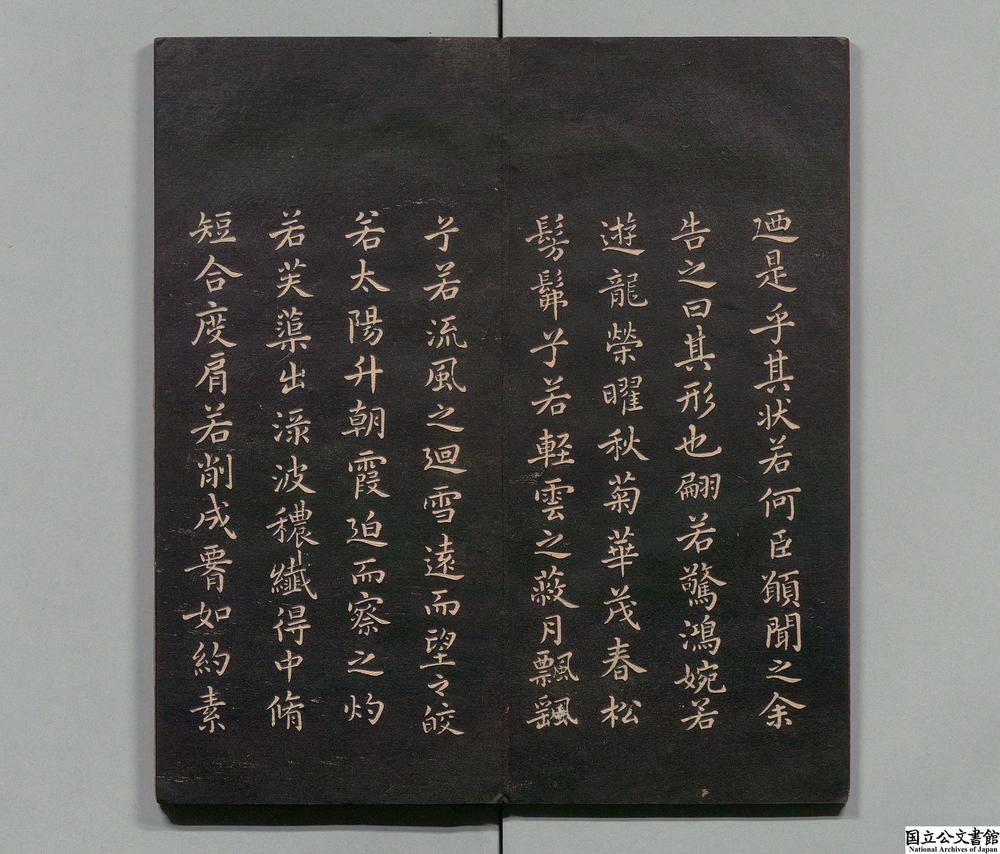 廼是乎其状若何臣願聞之余
告之曰其形也翩若驚鴻婉若
遊龍榮曜秋菊華茂春松
髣髴兮若軽雲之蔽月飄颻
兮若流風之迴雪遠而望之皎
若太陽升朝霞迫而察之灼
若芙蕖出淥波穠纖得中脩
短合度肩若削成署如約素
国立公文書館
National Archives of Japan